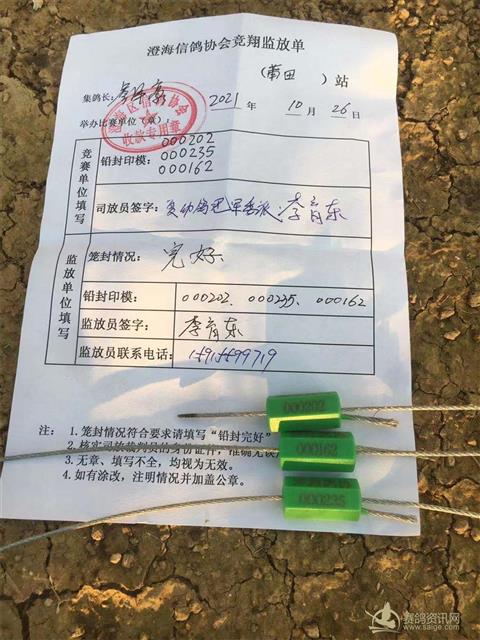 澄海信鸽协会竞翔监放单
(莆田 )站
集鸽长:
2021 年 10 月 26 日
举办比赛单位(章):
收款专用章
竞赛单位填写
铅封印模:
000202
000235
000162
司放员签字: 李育东
监放单位填写
笼封情况: 完好
铅封印模: 000202、000235、000162
监放员签字: 李育东
监放员联系电话:
注: 1.笼封情况符合要求请填写“铅封完好”
2.核实司放裁判员的身份证件,准确无误
3.无章、填写不全,均视为无效。
4.如有涂改,注明情况并加盖公章。
000202
000162
000235
赛鸽资讯网
www.saige.com